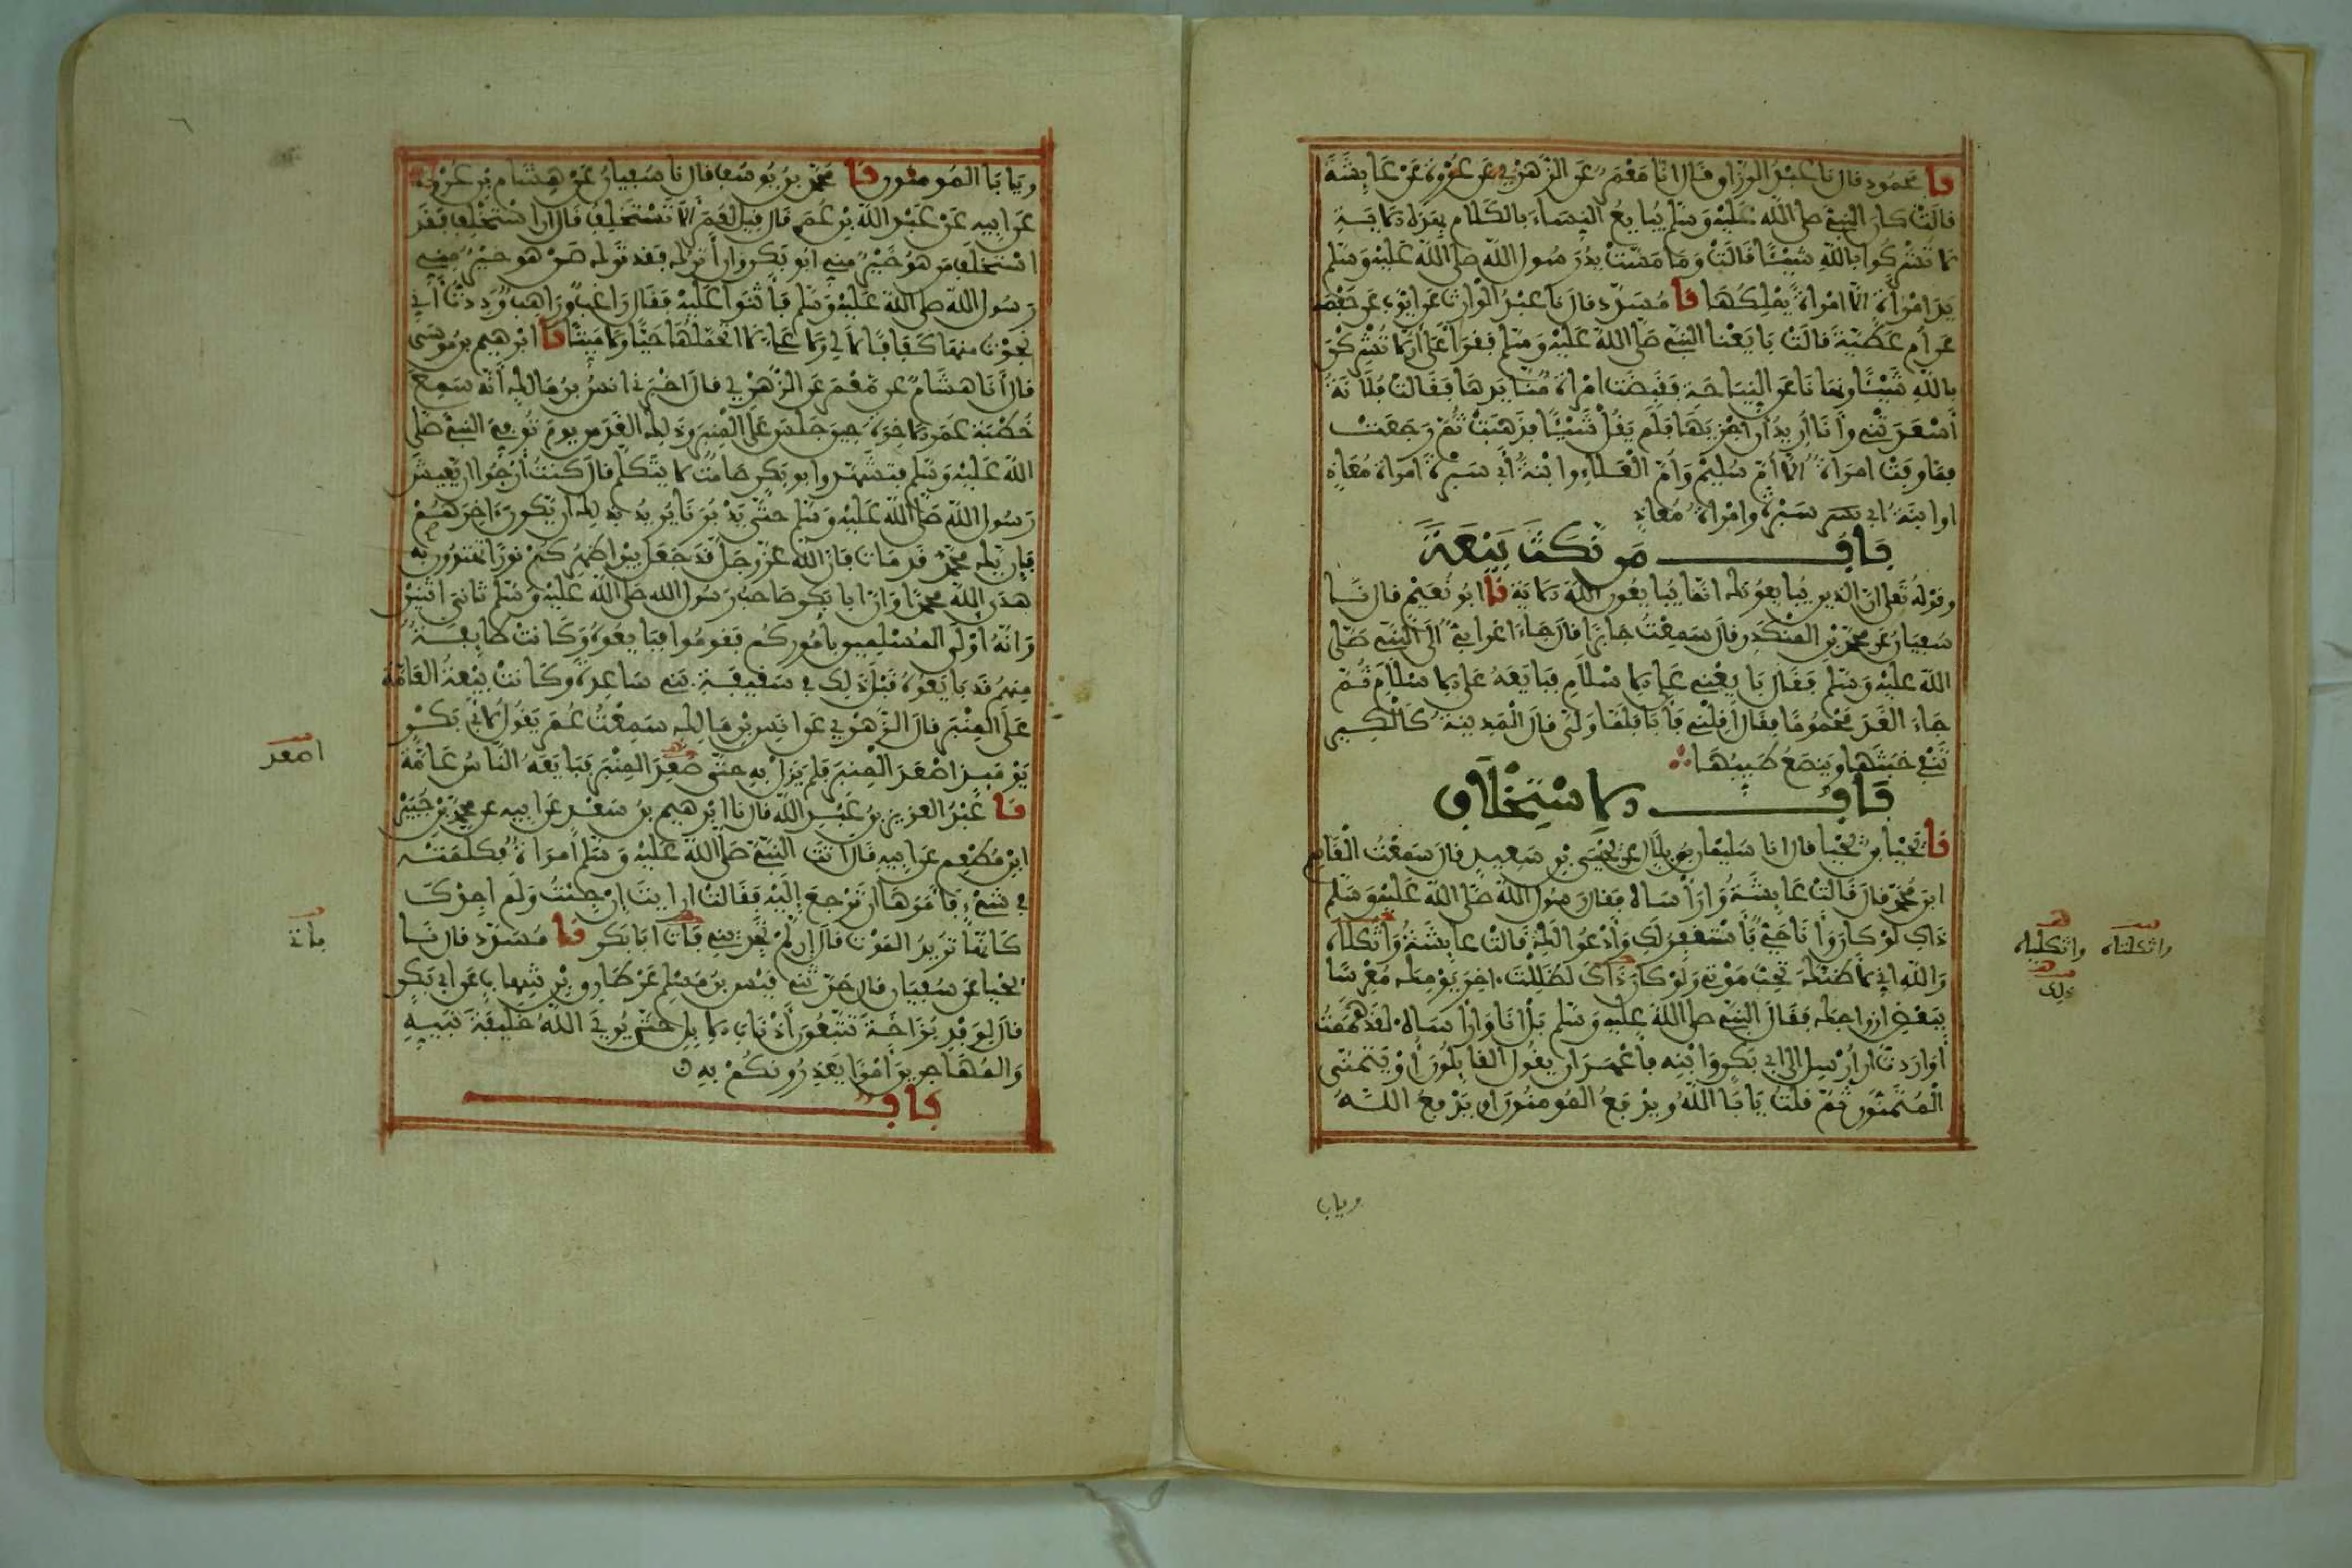 نا محمود قال نا عبد الرزاق قال انا معمر عن الزهري عن عروة عن عايشة
قالت كان النبي صلى الله عليه وسلم يبايع النساء بالكلام بهذه الاية
لا تشركوا بالله شيئا قالت وما مست يد رسول الله صلى الله عليه وسلم
يد امراة الا امراة يملكها نا مسدد قال نا عبد الوارث عن ايوب عن حفصة
عن ام عطية قالت بايعنا النبي صلى الله عليه وسلم فقرا علي ان لا تشركن
بالله شيئا ونهانا عن النياحة فقبضت امراة منا يدها فقالت فلانة
أسعدتني وأنا أريد أن أجزيها فلم يقل شيئا فذهبت ثم رجعت
فما وفت امراة الا أم سليم وأم العلاء وابنة أبي سبرة امراة معاذ
او ابنة ابي سبرة وامراة معاذ
باب من نكث بيعة
وقوله تعلى ان الذين يبايعونك انما يبايعون الله الاية نا ابو نعيم قال نا
سفيان عن محمد بن المنكدر قال سمعت جابرا قال جاء اعرابي الى النبي صلى
الله عليه وسلم فقال بايعني على الاسلام فبايعه على الاسلام ثم
جاء الغد محموما فقال أقلني فأبا فلما ولى قال المدينة كالكير
تنفي خبثها وينصع طيبها
باب الاستخلاف
نا يحيا بن يحيا قال انا سليمان بن بلال عن يحيى بن سعيد قال سمعت القاسم
ابن محمد قال قالت عايشة وارأساه فقال رسول الله صلى الله عليه وسلم
ذاك لو كان وأنا حي فأستغفر لك وأدعوا لك قالت عايشة واثكلاه
والله اني لأظنك تحب موتي ولو كان ذاك لظللت اخر يومك معرسا
ببعض ازواجك فقال النبي صلى الله عليه وسلم بل انا وارأساه لقد هممت
أو اردت ان ارسل الى ابي بكر وابنه فأعهد ان يقول القايلون أو يتمنى
المتمنون ثم قلت يابا الله ويدفع المومنون او يدفع الله
ويابا
واثكلتاه
واثكلياه
ذلك
ويابا المومنون نا محمد بن يوسف قال نا سفيان عن هشام بن عروة
عن ابيه عن عبد الله بن عمر قال قيل لعمر ألا تستخلف قال ان استخلف فقد
استخلف من هو خير مني ابو بكر وان أترك فقد ترك من هو خير مني
رسول الله صلى الله عليه وسلم فأثنوا عليه فقال راغب وراهب وددت أني
نجوت منها كفافا لا لي ولا علي لا اتحملها حيا ولا ميتا نا ابرهيم بن موسى
قال أنا هشام عن معمر عن الزهري قال اخبرني انس بن مالك أنه سمع
خطبة عمر الاخرة حين جلس على المنبر وذلك الغد من يوم توفي النبي صلى
الله عليه وسلم فتشهد وابو بكر صامت لا يتكلم قال كنت أرجوا ان يعيش
رسول الله صلى الله عليه وسلم حتى يدبرنا يريد بذلك ان يكون اخرهم
فإن يك محمد قد مات فان الله عز وجل قد جعل بين اظهركم نورا تهتدون به
هدى الله محمدا وان ابا بكر صاحب رسول الله صلى الله عليه وسلم ثاني اثنين
وانه أولى المسلمين بأموركم فقوموا فبايعوه وكانت طايفة
منهم قد بايعوه قبل ذلك في سقيفة بني ساعدة وكانت بيعة العامة
على المنبر قال الزهري عن انس بن مالك سمعت عمر يقول لأبي بكر
يومئذ اصعد المنبر فلم يزل به حتى صعد المنبر فبايعه الناس عامة
نا عبد العزيز بن عبد الله قال نا ابرهيم بن سعد عن ابيه عن محمد بن جبير
ابن مطعم عن ابيه قال اتت النبي صلى الله عليه وسلم امراة فكلمته
في شيء فأمرها ان ترجع اليه فقالت ارايت ان جئت ولم اجدك
كانها تريد الموت قال ان لم تجديني فات ابا بكر نا مسدد قال نا
يحيا عن سفيان قال حدثني قيس بن مسلم عن طارق بن شهاب عن ابي بكر
قال لوفد بزاخة تتبعون أذناب الابل حتى يري الله خليفة نبيه
والمهاجرين أمرا يعذرونكم به
باب
اصعد
فأت